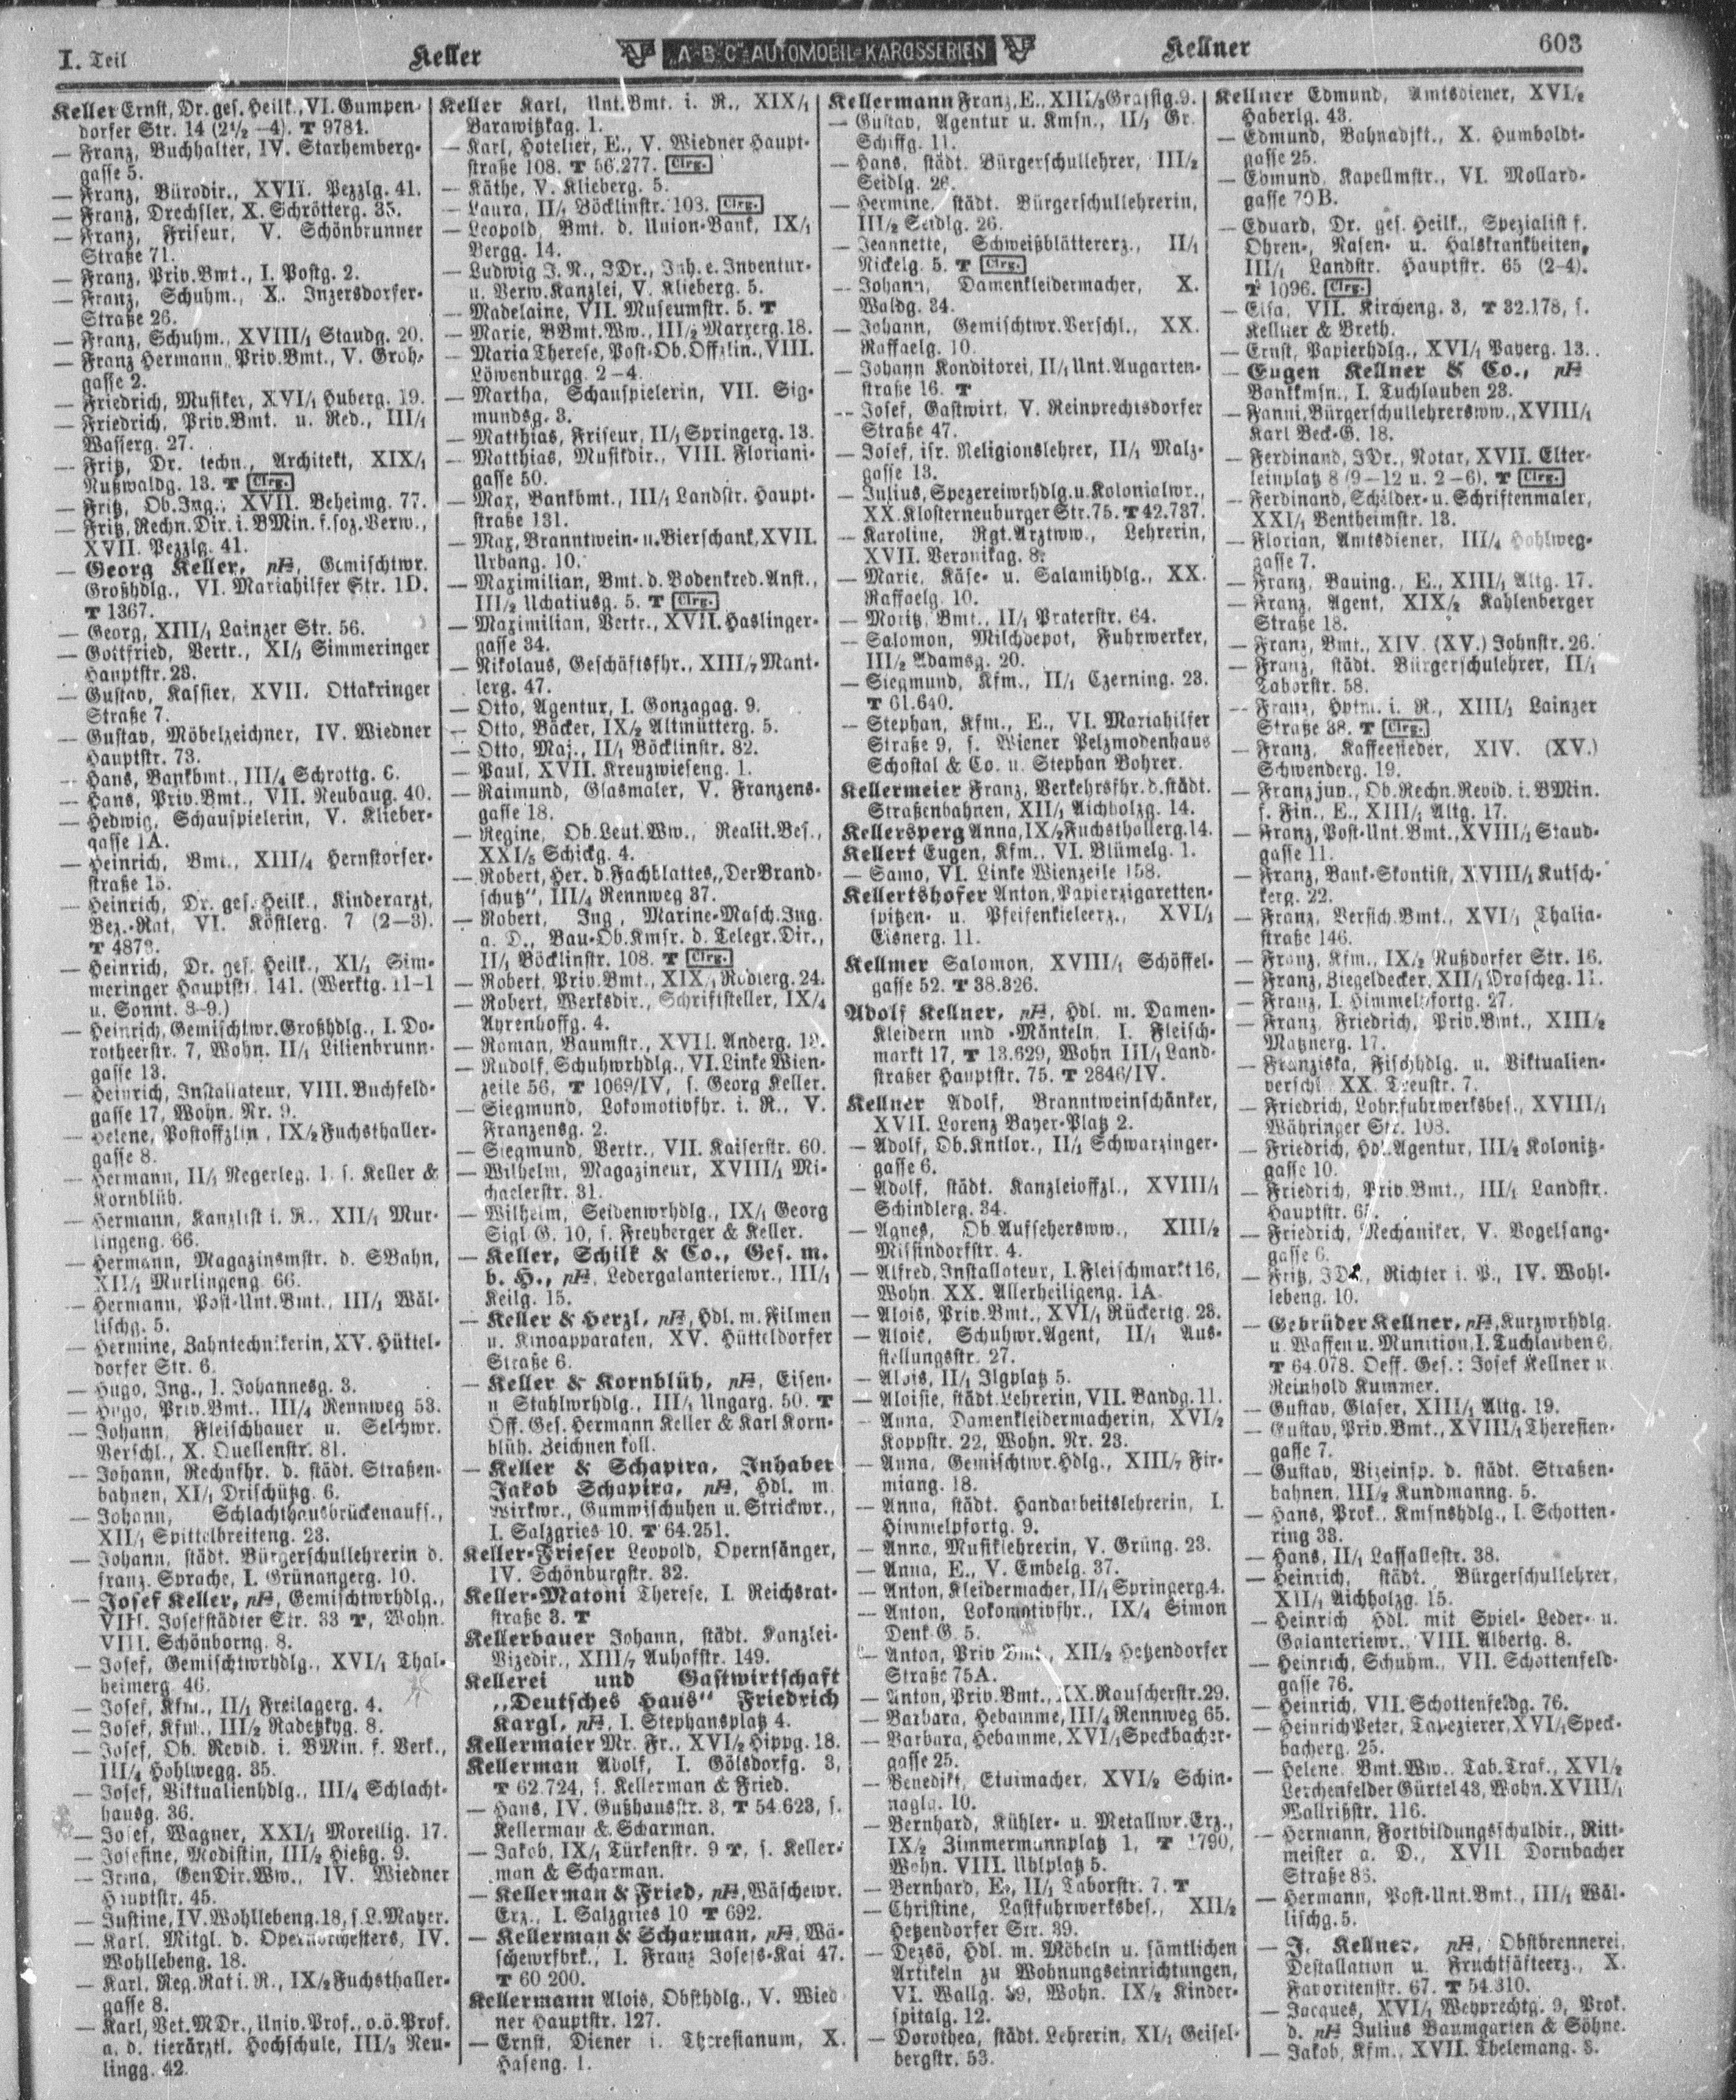 I. Teil
Keller
„A-B-C"-AUTOMOBIL-KAROSSERIEN
Kellner
603
Keller Ernst, Dr. ges. Heilk., VI. Gumpen-
dorfer Str. 14 (2½—4). T 9781.
— Franz, Buchhalter, IV. Starhemberg-
gasse 5.
— Franz, Bürodir., XVII. Pezzlg. 41.
— Franz, Drechsler, X. Schrötterg. 35.
— Franz, Friseur, V. Schönbrunner
Straße 71.
— Franz, Priv.Bmt., I. Postg. 2.
— Franz, Schuhm., X. Inzersdorfer-
Straße 26.
— Franz, Schuhm., XVIII/1 Staudg. 20.
— Franz Hermann, Priv.Bmt., V. Groh-
gasse 2.
— Friedrich, Musiker, XVI/1 Huberg. 19.
— Friedrich, Priv.Bmt. u. Red., III/1
Wasserg. 27.
— Fritz, Dr. techn., Architekt, XIX/1
Nußwaldg. 13. T Clrg.
— Fritz, Ob.Ing., XVII. Beheimg. 77.
— Fritz, Rechn.Dir. i. BMin. f. soz. Verw.,
XVII. Pezzlg. 41.
— Georg Keller, pH, Gemischtwr.
Großhdlg., VI. Mariahilfer Str. 1D.
T 1367.
— Georg, XIII/1 Lainzer Str. 56.
— Gottfried, Vertr., XI/1 Simmeringer
Hauptstr. 23.
— Gustav, Kassier, XVII. Ottakringer
Straße 7.
— Gustav, Möbelzeichner, IV. Wiedner
Hauptstr. 73.
— Hans, Bankbmt., III/4 Schrottg. 6.
— Hans, Priv.Bmt., VII. Neubaug. 40.
— Hedwig, Schauspielerin, V. Klieber-
gasse 1A.
— Heinrich, Bmt., XIII/4 Hernstorfer-
straße 15.
— Heinrich, Dr. ges. Heilk., Kinderarzt,
Bez.-Rat, VI. Köstlerg. 7 (2—3).
T 4873.
— Heinrich, Dr. ges. Heilk., XI/1 Sim-
meringer Hauptstr. 141. (Werktg. 11-1
u. Sonnt. 8-9.)
— Heinrich, Gemischtwr.Großhdlg., I. Do-
rotheerstr. 7, Wohn. II/1 Lilienbrunn-
gasse 13.
— Heinrich, Installateur, VIII. Buchfeld-
gasse 17, Wohn. Nr. 9.
— Helene, Postoffzlin., IX/2 Fuchsthaller-
gasse 8.
— Hermann, II/1 Negerleg. 1. s. Keller &
Kornblüh.
— Hermann, Kanzlist i. R., XII/1 Mur-
lingeng. 66.
— Hermann, Magazinsmstr. d. SBahn,
XII/1 Murlingeng. 66.
— Hermann, Post-Unt.Bmt., III/1 Wäl-
lischg. 5.
— Hermine, Zahntechnikerin, XV. Hüttel-
dorfer Str. 6.
— Hugo, Ing., I. Johannesg. 3.
— Hugo, Priv.Bmt., III/4 Rennweg 53.
— Johann, Fleischhauer u. Selchwr.
Verschl., X. Quellenstr. 81.
— Johann, Rechnfhr. d. städt. Straßen-
bahnen, XI/1 Drischützg. 6.
— Johann, Schlachthausbrückenaufs.,
XII/1 Spittelbreiteng. 23.
— Johann, städt. Bürgerschullehrerin d.
franz. Sprache, I. Grünangerg. 10.
— Josef Keller, pH, Gemischtwrhdlg.,
VIII. Josefstädter Str. 33 T, Wohn.
VIII. Schönborng. 8.
— Josef, Gemischtwrhdlg., XVI/1 Thal-
heimerg. 46.
— Josef, Kfm., II/1 Freilagerg. 4.
— Josef, Kfm., III/2 Radetzkyg. 8.
— Josef, Ob. Revid. i. BMin. f. Verk.,
III/4 Hohlwegg. 35.
— Josef, Viktualienhdlg., III/4 Schlacht-
hausg. 36.
— Josef, Wagner, XXI/1 Moreilig. 17.
— Josefine, Modistin, III/2 Hießg. 9.
— Irma, GenDir.Ww., IV. Wiedner
Hauptstr. 45.
— Justine, IV. Wohllebeng. 18, s. L. Mayer.
— Karl, Mitgl. d. Opernorchesters, IV.
Wohllebeng. 18.
— Karl, Reg.Rat i. R., IX/2 Fuchsthaller-
gasse 8.
— Karl, Vet.MDr., Univ.Prof., o.ö. Prof.
a. d. tierärztl. Hochschule, III/3 Neu-
lingg. 42.
Keller Karl, Unt.Bmt. i. R., XIX/1
Barawitzkag. 1.
— Karl, Hotelier, E., V. Wiedner Haupt-
straße 108. T 56.277. Clrg.
— Käthe, V. Klieberg. 5.
— Laura, II/1 Böcklinstr. 108. Clrg.
— Leopold, Bmt. d. Union-Bank, IX/1
Bergg. 14.
— Ludwig J. N., JDr., Inh. e. Inventur-
u. Verw.Kanzlei, V. Klieberg. 5.
— Madelaine, VII. Museumstr. 5. T
— Marie, BBmt.Ww., III/2 Marxerg. 18.
— Maria Therese, Post-Ob.Offzlin., VIII.
Löwenburgg. 2—4.
— Martha, Schauspielerin, VII. Sig-
mundsg. 3.
— Matthias, Friseur, II/1 Springerg. 13.
— Matthias, Musikdir., VIII. Floriani-
gasse 50.
— Max, Bankbmt., III/1 Landstr. Haupt-
straße 131.
— Max, Branntwein- u. Bierschank, XVII.
Urbang. 10.
— Maximilian, Bmt. d. Bodenkred.Anst.,
III/2 Uchatiusg. 5. T Clrg.
— Maximilian, Vertr., XVII. Haslinger-
gasse 34.
— Nikolaus, Geschäftsfhr., XIII/7 Mant-
lerg. 47.
— Otto, Agentur, I. Gonzagag. 9.
— Otto, Bäcker, IX/2 Altmütterg. 5.
— Otto, Maj., II/1 Böcklinstr. 82.
— Paul, XVII. Kreuzwieseng. 1.
— Raimund, Glasmaler, V. Franzens-
gasse 18.
— Regine, Ob.Leut.Ww., Realit.Bes.,
XXI/5 Schickg. 4.
— Robert, Her. d. Fachblattes „Der Brand-
schutz", III/4 Rennweg 37.
— Robert, Ing., Marine-Masch.Ing.
a. D., Bau-Ob.Kmsr. d. Telegr.Dir.,
II/1 Böcklinstr. 108. T Clrg.
— Robert, Priv.Bmt., XIX/1 Rodlerg. 24.
— Robert, Werksdir., Schriftsteller, IX/4
Ayrenhoffg. 4.
— Roman, Baumstr., XVII. Anderg. 19.
— Rudolf, Schuhwrhdlg., VI. Linke Wien-
zeile 56, T 1069/IV, s. Georg Keller.
— Siegmund, Lokomotivfhr. i. R., V.
Franzensg. 2.
— Siegmund, Vertr., VII. Kaiserstr. 60.
— Wilhelm, Magazineur, XVIII/1 Mi-
chaelerstr. 31.
— Wilhelm, Seidenwrhdlg., IX/1 Georg
Sigl G. 10, s. Freyberger & Keller.
— Keller, Schilk & Co., Ges. m.
b. H., pH, Ledergalanteriewr., III/1
Keilg. 15.
— Keller & Herzl, pH, Hdl. m. Filmen
u. Kinoapparaten, XV. Hütteldorfer
Straße 6.
— Keller & Kornblüh, pH, Eisen-
u. Stahlwrhdlg., III/1 Ungarg. 50. T
Off. Ges. Hermann Keller & Karl Korn-
blüh. Zeichnen koll.
— Keller & Schapira, Inhaber
Jakob Schapira, pH, Hdl. m.
Wirkwr., Gummischuhen u. Strickwr.,
I. Salzgries 10. T 64.251.
Keller-Frieser Leopold, Opernsänger,
IV. Schönburgstr. 32.
Keller-Matoni Therese, I. Reichsrat-
straße 3. T
Kellerbauer Johann, städt. Kanzlei-
Vizedir., XIII/7 Auhofstr. 149.
Kellerei und Gastwirtschaft
„Deutsches Haus" Friedrich
Kargl, pH, I. Stephansplatz 4.
Kellermaier Mr. Fr., XVI/2 Hippg. 18.
Kellerman Adolf, I. Gölsdorfg. 3,
T 62.724, s. Kellerman & Fried.
— Hans, IV. Gußhausstr. 3, T 54.623, s.
Kellerman & Scharman.
— Jakob, IX/1 Türkenstr. 9 T, s. Keller-
man & Scharman.
— Kellerman & Fried, pH, Wäschewr.
Erz., I. Salzgries 10 T 692.
— Kellerman & Scharman, pH, Wä-
schewrfbrk., I. Franz Josefs-Kai 47.
T 60.200.
Kellermann Alois, Obsthdlg., V. Wied
ner Hauptstr. 127.
— Ernst, Diener i. Theresianum, X.
Haseng. 1.
Kellermann Franz, E., XIII/3 Grassig. 9.
— Gustav, Agentur u. Kmsn., II/1 Gr.
Schiffg. 11.
— Hans, städt. Bürgerschullehrer, III/2
Seidlg. 26.
— Hermine, städt. Bürgerschullehrerin,
III/2 Seidlg. 26.
— Jeannette, Schweißblättererz., II/1
Nickelg. 5. T Clrg.
— Johann, Damenkleidermacher, X.
Waldg. 34.
— Johann, Gemischtwr.Verschl., XX.
Raffaelg. 10.
— Johann Konditorei, II/1 Unt. Augarten-
straße 16. T
— Josef, Gastwirt, V. Reinprechtsdorfer
Straße 47.
— Josef, isr. Religionslehrer, II/1 Malz-
gasse 13.
— Julius, Spezereiwrhdlg. u. Kolonialwr.,
XX. Klosterneuburger Str. 75. T 42.737.
— Karoline, Rgt.Arztww., Lehrerin,
XVII. Veronikag. 8.
— Marie, Käse- u. Salamihdlg., XX.
Raffaelg. 10.
— Moritz, Bmt., II/1 Praterstr. 64.
— Salomon, Milchdepot, Fuhrwerker,
III/2 Adamsg. 20.
— Siegmund, Kfm., II/1 Czerning. 23.
T 61.640.
— Stephan, Kfm., E., VI. Mariahilfer
Straße 9, s. Wiener Pelzmodenhaus
Schostal & Co. u. Stephan Bohrer.
Kellermeier Franz, Verkehrsfhr. d. städt.
Straßenbahnen, XII/1 Aichholzg. 14.
Kellersperg Anna, IX/2 Fuchsthallerg. 14.
Kellert Eugen, Kfm., VI. Blümelg. 1.
— Samo, VI. Linke Wienzeile 158.
Kellertshofer Anton, Papierzigaretten-
spitzen- u. Pfeifenkielerz., XVI/1
Eisnerg. 11.
Kellmer Salomon, XVIII/1 Schöffel-
gasse 52. T 38.326.
Adolf Kellner, pH, Hdl. m. Damen-
Kleidern und -Mänteln, I. Fleisch-
markt 17, T 13.629, Wohn III/1 Land-
straßer Hauptstr. 75. T 2846/IV.
Kellner Adolf, Branntweinschänker,
XVII. Lorenz Bayer-Platz 2.
— Adolf, Ob.Kntlor., II/1 Schwarzinger-
gasse 6.
— Adolf, städt. Kanzleioffzl., XVIII/1
Schindlerg. 34.
— Agnes, Ob. Aufsehersww., XIII/2
Missindorfstr. 4.
— Alfred, Installateur, I. Fleischmarkt 16,
Wohn. XX. Allerheiligeng. 1A.
— Alois, Priv.Bmt., XVI/1 Rückertg. 23.
— Alois, Schuhwr.Agent, II/1 Aus-
stellungsstr. 27.
— Alois, II/1 Ilgplatz 5.
— Aloisie, städt. Lehrerin, VII. Bandg. 11.
— Anna, Damenkleidermacherin, XVI/2
Koppstr. 22, Wohn. Nr. 23.
— Anna, Gemischtwr.Hdlg., XIII/7 Fir-
miang. 18.
— Anna, städt. Handarbeitslehrerin, I.
Himmelpfortg. 9.
— Anna, Musiklehrerin, V. Grüng. 23.
— Anna, E., V. Embelg. 37.
— Anton, Kleidermacher, II/1 Springerg. 4.
— Anton, Lokomotivfhr., IX/4 Simon
Denk G. 5.
— Anton, Priv.Bmt., XII/2 Hetzendorfer
Straße 75A.
— Anton, Priv.Bmt., XX. Rauscherstr. 29.
— Barbara, Hebamme, III/4 Rennweg 65.
— Barbara, Hebamme, XVI/1 Speckbacher-
gasse 25.
— Benedikt, Etuimacher, XVI/2 Schin-
naglg. 10.
— Bernhard, Kühler- u. Metallwr.Erz.,
IX/2 Zimmermannplatz 1, T 1790,
Wohn. VIII. Uhlplatz 5.
— Bernhard, E., II/1 Taborstr. 7. T
— Christine, Lastfuhrwerksbes., XII/2
Hetzendorfer Str. 39.
— Dezsö, Hdl. m. Möbeln u. sämtlichen
Artikeln zu Wohnungseinrichtungen,
VI. Wallg. 39, Wohn. IX/2 Kinder-
spitalg. 12.
— Dorothea, städt. Lehrerin, XI/1 Geisel-
bergstr. 53.
Kellner Edmund, Amtsdiener, XVI/2
Haberlg. 43.
— Edmund, Bahnadjkt., X. Humboldt-
gasse 25.
— Edmund, Kapellmstr., VI. Mollard-
gasse 70B.
— Eduard, Dr. ges. Heilk., Spezialist f.
Ohren-, Nasen- u. Halskrankheiten,
III/1 Landstr. Hauptstr. 65 (2-4).
T 1096. Clrg.
— Elsa, VII. Kircheng. 3, T 32.178, s.
Kellner & Breth.
— Ernst, Papierhdlg., XVI/1 Payerg. 13.
— Eugen Kellner & Co., pH
Bankkmsn., I. Tuchlauben 23.
— Fanni, Bürgerschullehrersww., XVIII/1
Karl Beck-G. 18.
— Ferdinand, JDr., Notar, XVII. Elter-
leinplatz 8 (9—12 u. 2—6). T Clrg.
— Ferdinand, Schilder- u. Schriftenmaler,
XXI/1 Bentheimstr. 13.
— Florian, Amtsdiener, III/4 Hohlweg-
gasse 7.
— Franz, Bauing., E., XIII/1 Altg. 17.
— Franz, Agent, XIX/2 Kahlenberger
Straße 18.
— Franz, Bmt., XIV. (XV.) Johnstr. 26.
— Franz, städt. Bürgerschulehrer, II/1
Taborstr. 58.
— Franz, Hptm. i. R., XIII/1 Lainzer
Straße 38. T Clrg.
— Franz, Kaffeesieder, XIV. (XV.)
Schwenderg. 19.
— Franz jun., Ob.Rechn.Revid. i. BMin.
f. Fin., E., XIII/1 Altg. 17.
— Franz, Post-Unt.Bmt., XVIII/1 Staud-
gasse 11.
— Franz, Bank-Skontist, XVIII/1 Kutsch-
kerg. 22.
— Franz, Versich.Bmt., XVI/1 Thalia-
straße 146.
— Franz, Kfm., IX/2 Nußdorfer Str. 16.
— Franz, Ziegeldecker, XII/1 Drascheg. 11.
— Franz, I. Himmelpfortg. 27.
— Franz, Friedrich, Priv.Bmt., XIII/2
Matznerg. 17.
— Franziska, Fischhdlg. u. Viktualien-
verschl. XX. Treustr. 7.
— Friedrich, Lohnfuhrwerksbes., XVIII/1
Währinger Str. 108.
— Friedrich, Hdl.Agentur, III/2 Kolonitz-
gasse 10.
— Friedrich, Priv.Bmt., III/1 Landstr.
Hauptstr.
— Friedrich, Mechaniker, V. Vogelsang-
gasse 6.
— Fritz, JDr., Richter i. P., IV. Wohl-
lebeng. 10.
— Gebrüder Kellner, pH, Kurzwrhdlg.
u. Waffen u. Munition, I. Tuchlauben 6,
T 64.078. Oeff. Ges.: Josef Kellner u.
Reinhold Kummer.
— Gustav, Glaser, XIII/1 Altg. 19.
— Gustav, Priv.Bmt., XVIII/1 Theresien-
gasse 7.
— Gustav, Vizeinsp. d. städt. Straßen-
bahnen, III/2 Kundmanng. 5.
— Hans, Prok., Kmsnshdlg., I. Schotten-
ring 33.
— Hans, II/1 Lassallestr. 38.
— Heinrich, städt. Bürgerschullehrer,
XII/1 Aichholzg. 15.
— Heinrich Hdl. mit Spiel- Leder- u.
Galanteriewr., VIII. Albertg. 8.
— Heinrich, Schuhm., VII. Schottenfeld-
gasse 76.
— Heinrich, VII. Schottenfeldg. 76.
— Heinrich Peter, Tapezierer, XVI/1 Speck-
bacherg. 25.
— Helene, Bmt.Ww., Tab.Traf., XVI/2
Lerchenfelder Gürtel 43, Wohn. XVIII/1
Wallrißstr. 116.
— Hermann, Fortbildungsschuldir., Ritt-
meister a. D., XVII. Dornbacher
Straße 86.
— Hermann, Post-Unt.Bmt., III/1 Wäl-
lischg. 5.
— J. Kellner, pH, Obstbrennerei,
Destallation u. Fruchtsäfteerz., X.
Favoritenstr. 67. T 54.310.
— Jacques, XVI/1 Weyprechtg. 9, Prok.
d. pH Julius Baumgarten & Söhne.
— Jakob, Kfm., XVII. Thelemang. 8.